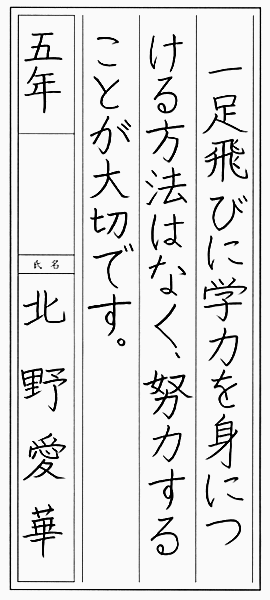 一足飛びに学力を身につ
ける方法はなく、努力する
ことが大切です。
五年
氏名
北野愛華